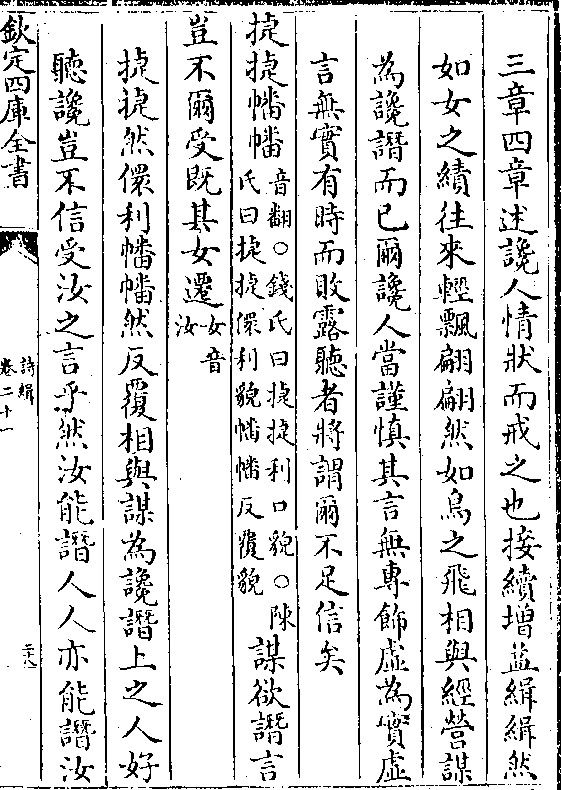 三章四章述讒人情狀而戒之也接續增益緝緝然
如女之績往來輕飄翩翩然如鳥之飛相與經營謀
為讒譖而已爾讒人當謹慎其言無專飾虛為實虛
言無實有時而敗露聽者將謂爾不足信矣
捷捷幡幡音翻○錢氏曰捷捷利口貌○陳氏曰捷捷儇利貌幡幡反覆貌謀欲譖言
豈不爾受既其女遷女音汝
捷捷然儇利幡幡然反覆相與謀為讒譖上之人好
聽讒豈不信受汝之言乎然汝能譖人人亦能譖汝
欽定四庫全書
詩緝
卷二十一
二十八